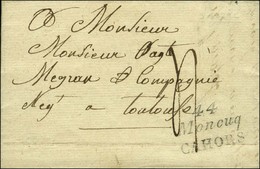 A Monsieur
Monsieur
Meyran & Compagnie
Neg.t a toulouse
44
Moncuq
CAHORS